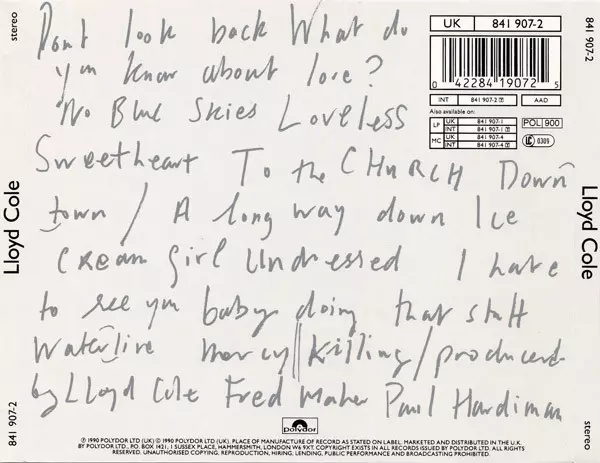 Dont look back What do
you know about love?
No Blue Skies Loveless
Sweetheart To the CHURCH Down
town / A long way down Ice
Cream Girl Undressed I hate
to see you baby doing that stuff
Waterline mercy killing / produced
by Lloyd Cole Fred Maher Paul Hardiman
stereo
Lloyd Cole
841 907-2
UK 841 907-2
0 42284 19072 5
INT 841 907-2 AAD
Also available on:
LP UK 841 907-1
INT 841 907-1
MC UK 841 907-4
INT 841 907-4
POL 900
LC 0309
841 907-2
Lloyd Cole
stereo
Polydor
℗ 1990 POLYDOR LTD (UK) © 1990 POLYDOR LTD (UK). PLACE OF MANUFACTURE OF RECORD AS STATED ON LABEL. MARKETED AND DISTRIBUTED IN THE U.K.
BY POLYDOR LTD., P.O. BOX 1421, 1 SUSSEX PLACE, HAMMERSMITH, LONDON W6 9XT. COPYRIGHT EXISTS IN ALL RECORDS ISSUED BY POLYDOR LTD. ALL RIGHTS
RESERVED. UNAUTHORISED COPYING, REPRODUCTION, HIRING, LENDING, PUBLIC PERFORMANCE AND BROADCASTING PROHIBITED.